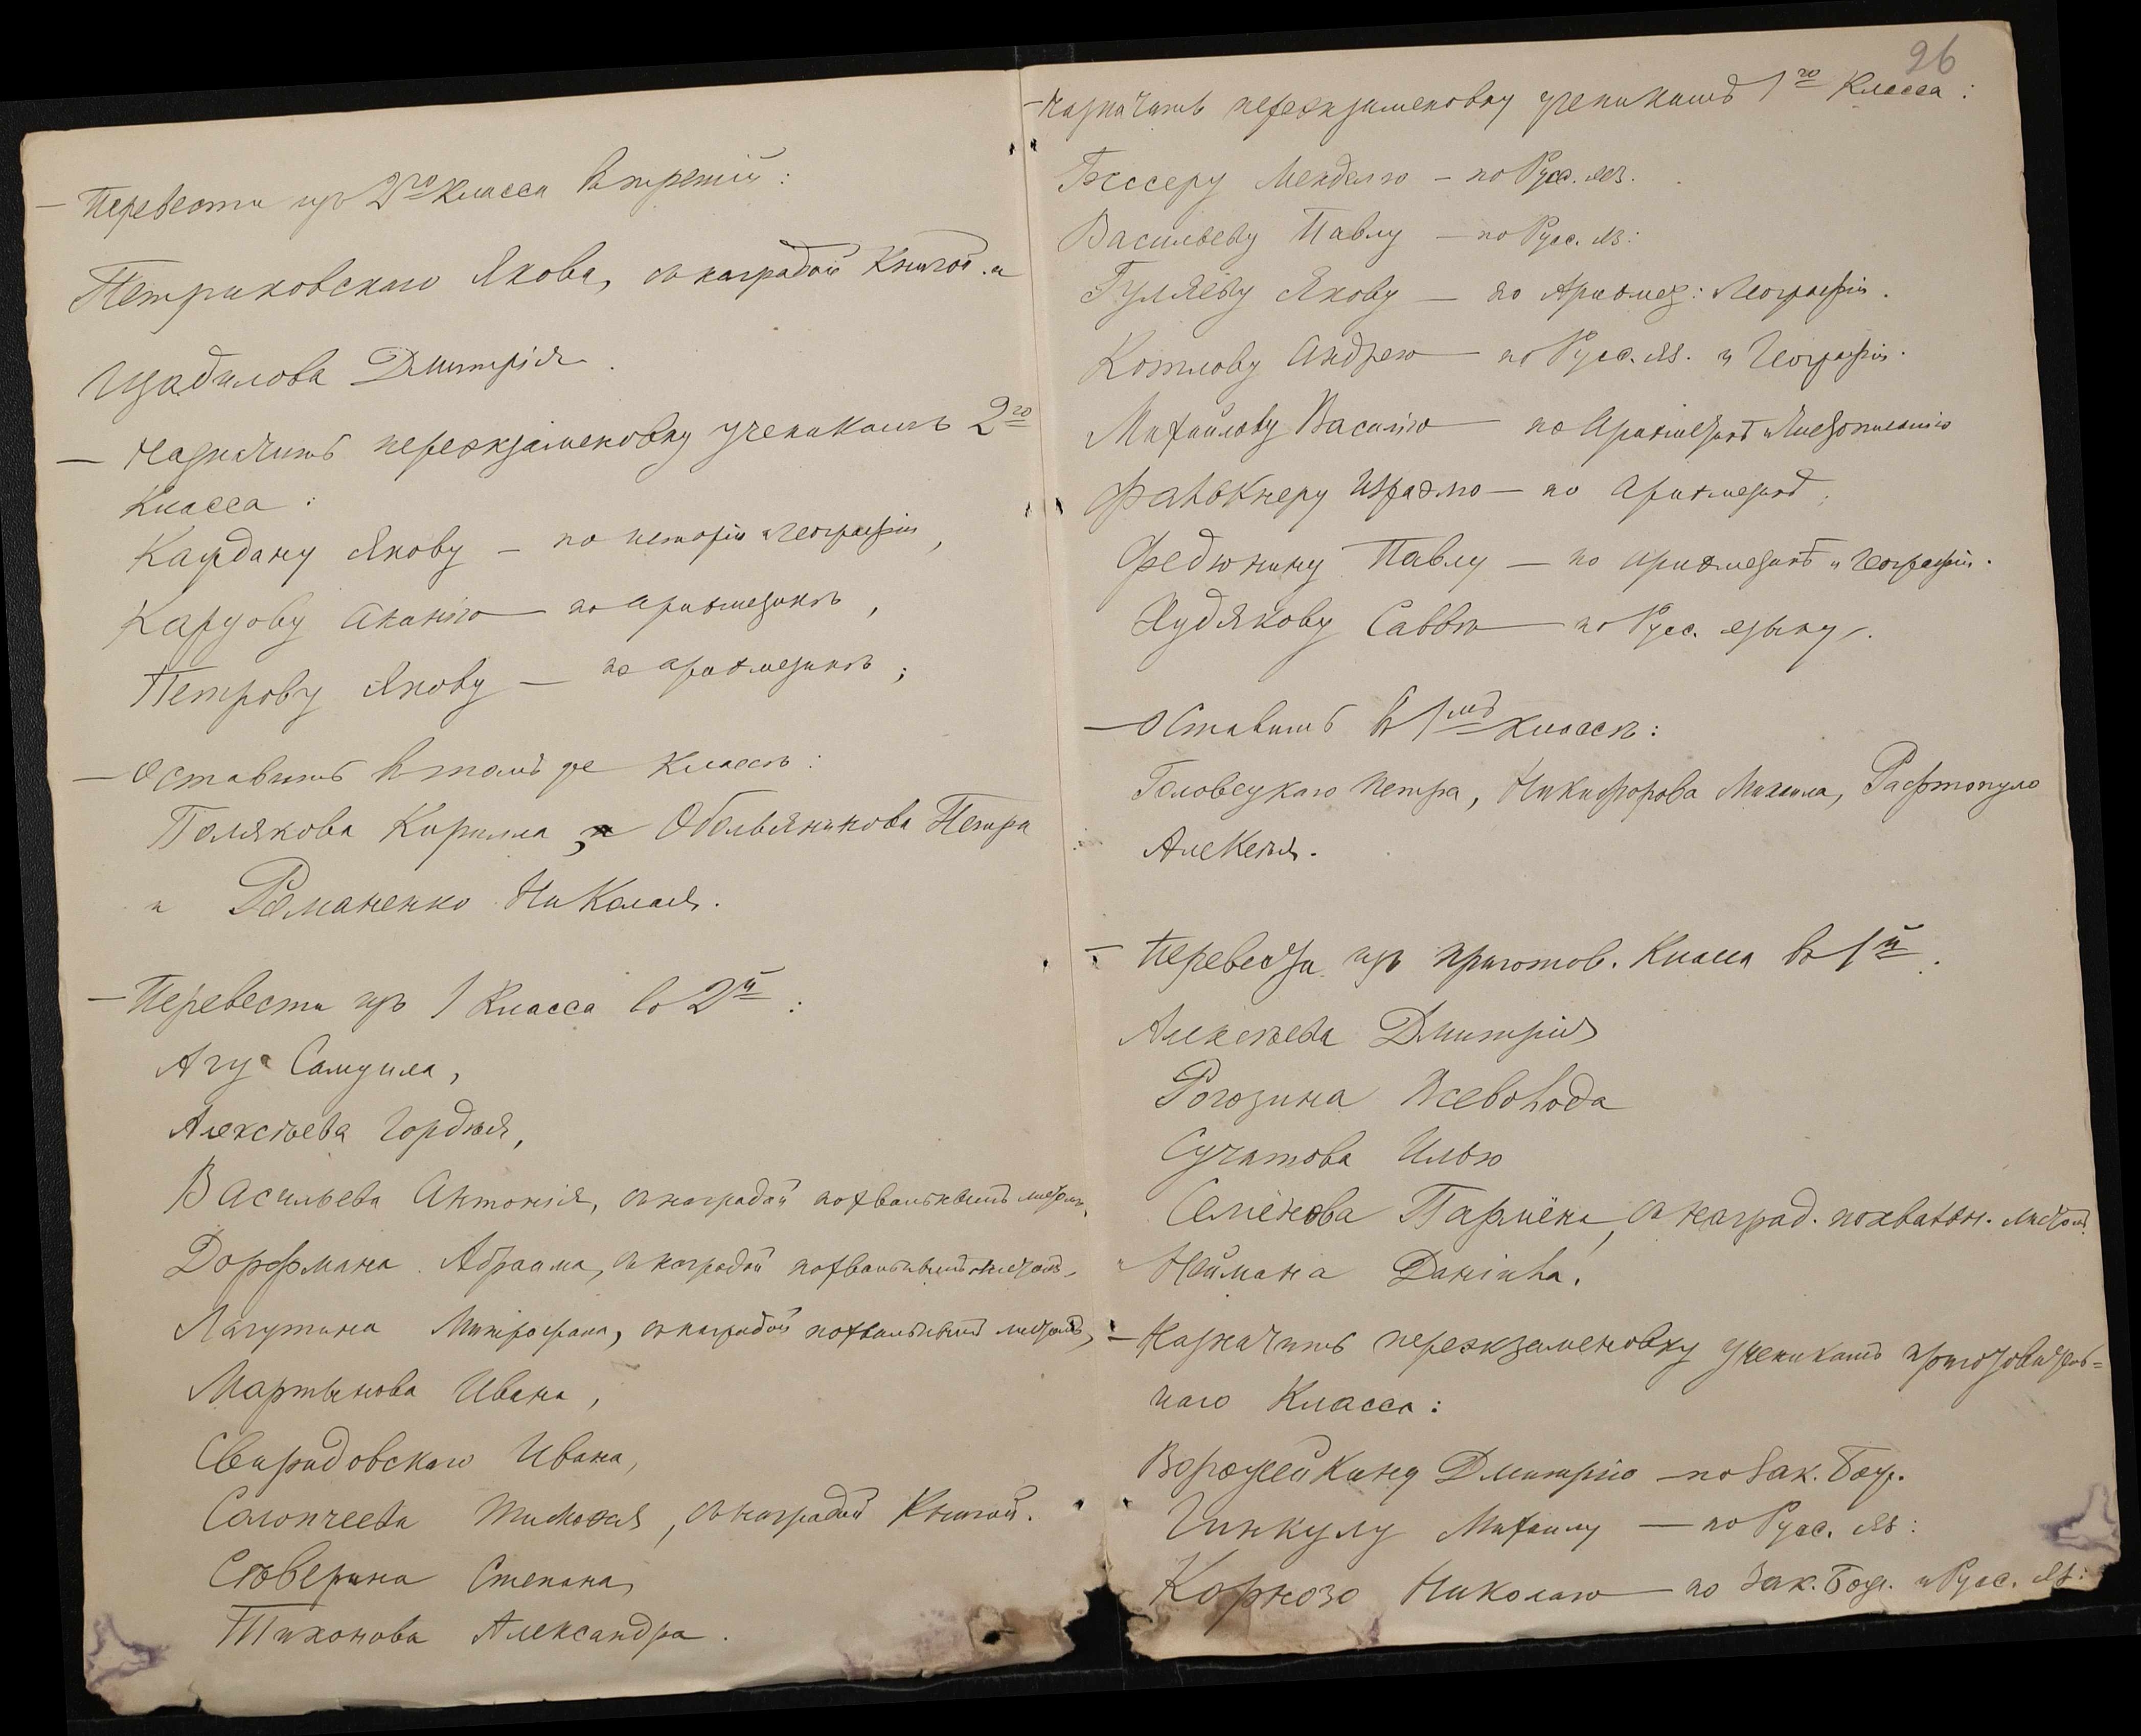 — Перевести изъ 2го класса въ третій:
Петриковскаго Якова, съ наградой книгой. и
Щадилова Дмитрія.
— Назначить переэкзаменовку ученикамъ 2го
класса:
Кафдану Якову — по исторіи и географіи,
Карпову Ананію — по ариѳметикѣ,
Петрову Якову — по ариѳметикѣ;
— Оставить въ томъ же классѣ:
Полякова Кирилла, Обольянинова Петра
и Романенко Николая.
— Перевести изъ 1 класса во 2й:
Агуа Самуила,
Алексѣева Гордѣя,
Васильева Антонія, съ наградой похвальнымъ листомъ,
Дорфмана Абрама, съ наградой похвальнымъ листомъ,
Лагутина Митрофана, съ наградой похвальнымъ листомъ,
Мартынова Ивана,
Свиридовскаго Ивана,
Тимоѳея, съ наградой книгой.
Сѣверина Степана,
Тихонова Александра.
26
— Назначить переэкзаменовку ученикамъ 1го класса:
Бессеру Менделю — по Русс. яз.
Васильеву Павлу — по Русс. яз:
Гуляеву Якову — по Ариѳмет: и Географіи.
Котлову Андрею — по Русс. яз. и Географіи.
Михайлову Василію — по Ариѳметикѣ и Чистописанію
Фалькнеру Израэлю — по Ариѳметикѣ.
Федюнину Павлу — по ариѳметикѣ и географіи.
Худякову Саввѣ — по Русс. языку.
— Оставить въ 1мъ классѣ:
Головецкаго Петра, Никифорова Михаила, Рафтопуло
Алексѣя.
— Перевести изъ приготов. класса въ 1й.
Алексѣева Дмитрія
Рогозина Всеволода
Сучатова Илью
Семёнова Пармёна, съ наград. похвальн. листомъ
и Неймана Даніила.
— Назначить переэкзаменовку ученикамъ приготовитель=
наго класса:
Ворожейкину Дмитрію — по Зак. Бож.
Гинкулу Михаилу — по Русс. яз:
Корнозо Николаю — по Зак. Бож. и Русс. яз: